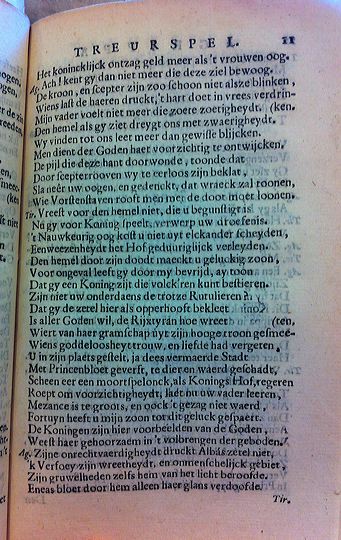 TREURSPEL. 11
Het konincklijck ontzag geld meer als 't vrouwen oog.
Ag. Ach! kent gy dan niet meer die deze ziel bewoog.
De kroon, en scepter zijn zoo schoon niet alsze blinken,
Wiens last de haeren druckt, 't hart doet in vrees verdrin-
Mijn vader voelt niet meer die zoete zoetigheydt. (ken.
Den hemel als gy ziet dreygt ons met zwaerigheydt.
Wy vinden tot ons leet meer dan gewisse blijcken.
Men dient der Goden haet voorzichtig te ontwijcken.
De pijl die deze hant doorwonde, toonde dat
Door scepterrooven wy te eerloos zijn beklat,
Sla neer uw oogen, en gedenckt, dat wraeck zal toonen,
Wie Vorsten staven rooft men met de doot moet loonen.
Tir. Vreest voor den hemel niet, die u begunstigt is
Nu gy voor Koning speelt, verwerp uw droefenis.
't Nauwkeurig oog heeft u niet uyt elckander scheyden,
Een weezenheydt het Hof geduuriglijck verleyden.
Ag. Den hemel door zijn doodt maeckt u geluckig zoon,
Voor ongeval leeft gy door my bevrijd, ay toon
Dat gy een Koning zijt die volck'ren kunt bestieren.
Zijn niet uw onderdaens de trotze Rutulieren?
Dat gy de zetel hier als opperhooft bekleet
Is aller Goden wil, de Rijxtyrán hoe wreet (ten,
Wiert van haer gramschap uyt zijn hooge troon gesmee-
Wiens goddeloosheyt trouw, en liefde had vergeten,
U in zijn plaets gestelt, ja dees vermaerde Stadt
Met Princenbloet geverft, te dier en waerd geschadt,
Scheen eer een moortspelonck, als Konings Hof, regeren
Roept om voorzichtigheydt, laet nu uw vader leeren,
Mezance is te groots, en oock t' gezag niet waerd,
Fortuyn heeft u mijn zoon tot dit geluck gespaert.
De Koningen zijn hier voorbeelden van de Goden,
Weest haer gehoorzaem in 't volbrengen der geboden.
Ag. Zijne onrechtvaerdigheydt druckt Albáás zetel niet,
'k Verfoey zijn wreetheydt, en onmenschelijck gebiet,
Zijn gruwelheden zelfs hem van het licht beroofde.
Eneas bloet door hem alleen haer glans verdoofde.
Tir.